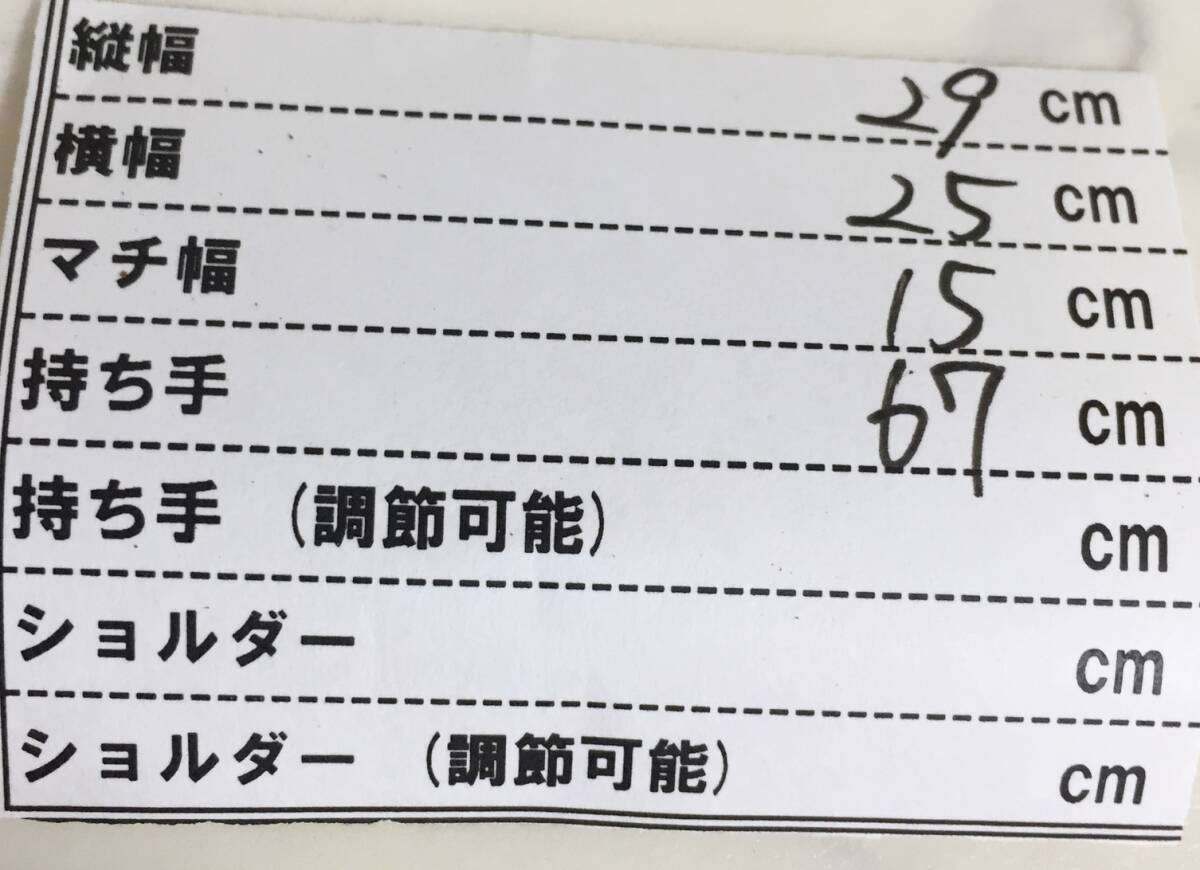 縦幅 29 cm
横幅 25 cm
マチ幅 15 cm
持ち手 67 cm
持ち手 (調節可能) cm
ショルダー cm
ショルダー (調節可能) cm